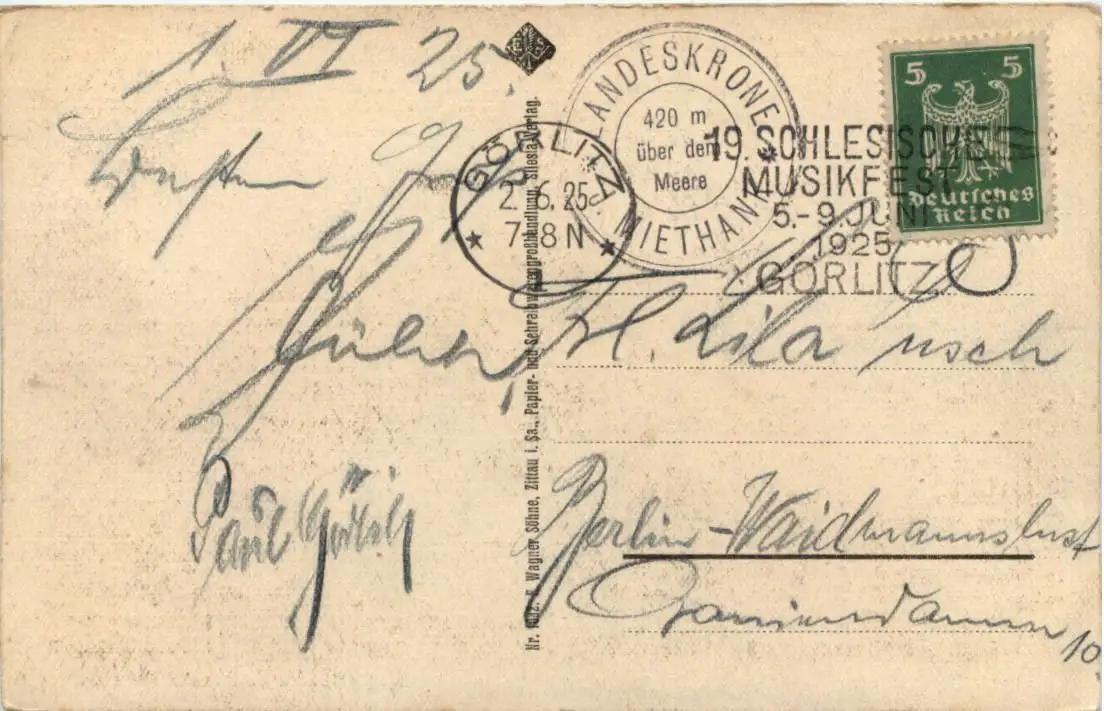 1. VI 25.
Besten Gruß
Paul
Nr. F. Wagner Söhne, Zittau i. Sa., Papier- und Schreibwarengroßhandlung, Silesia Verlag.
GÖRLITZ
2.6.25
7-8N
LANDESKRONE
420 m
über dem
Meere
MIETHANK
19. SCHLESISCHES
MUSIKFEST
5.-9. JUNI
1925
GÖRLITZ
5 5
Deutsches
Reich
Frl. Lila
Berlin-Waidmannslust
Oraniendamm 10